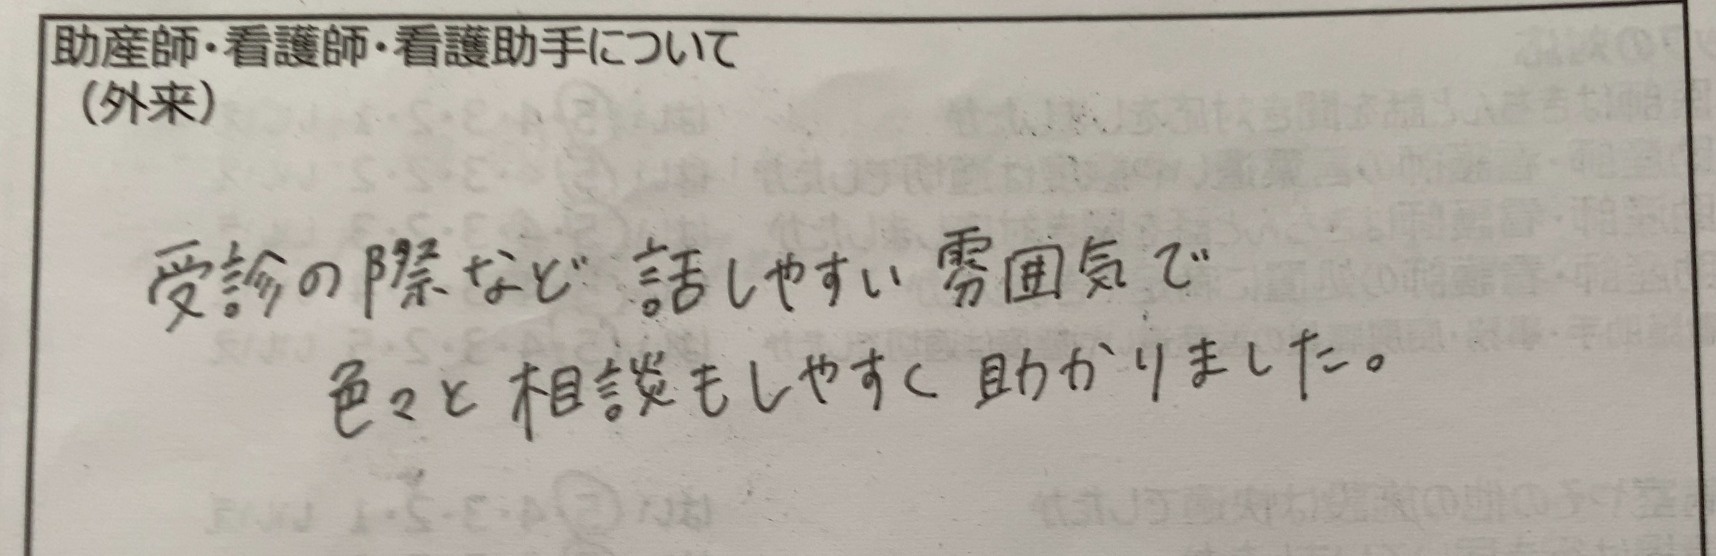 助産師・看護師・看護助手について
（外来）
受診の際など 話しやすい雰囲気で
色々と相談もしやすく助かりました。